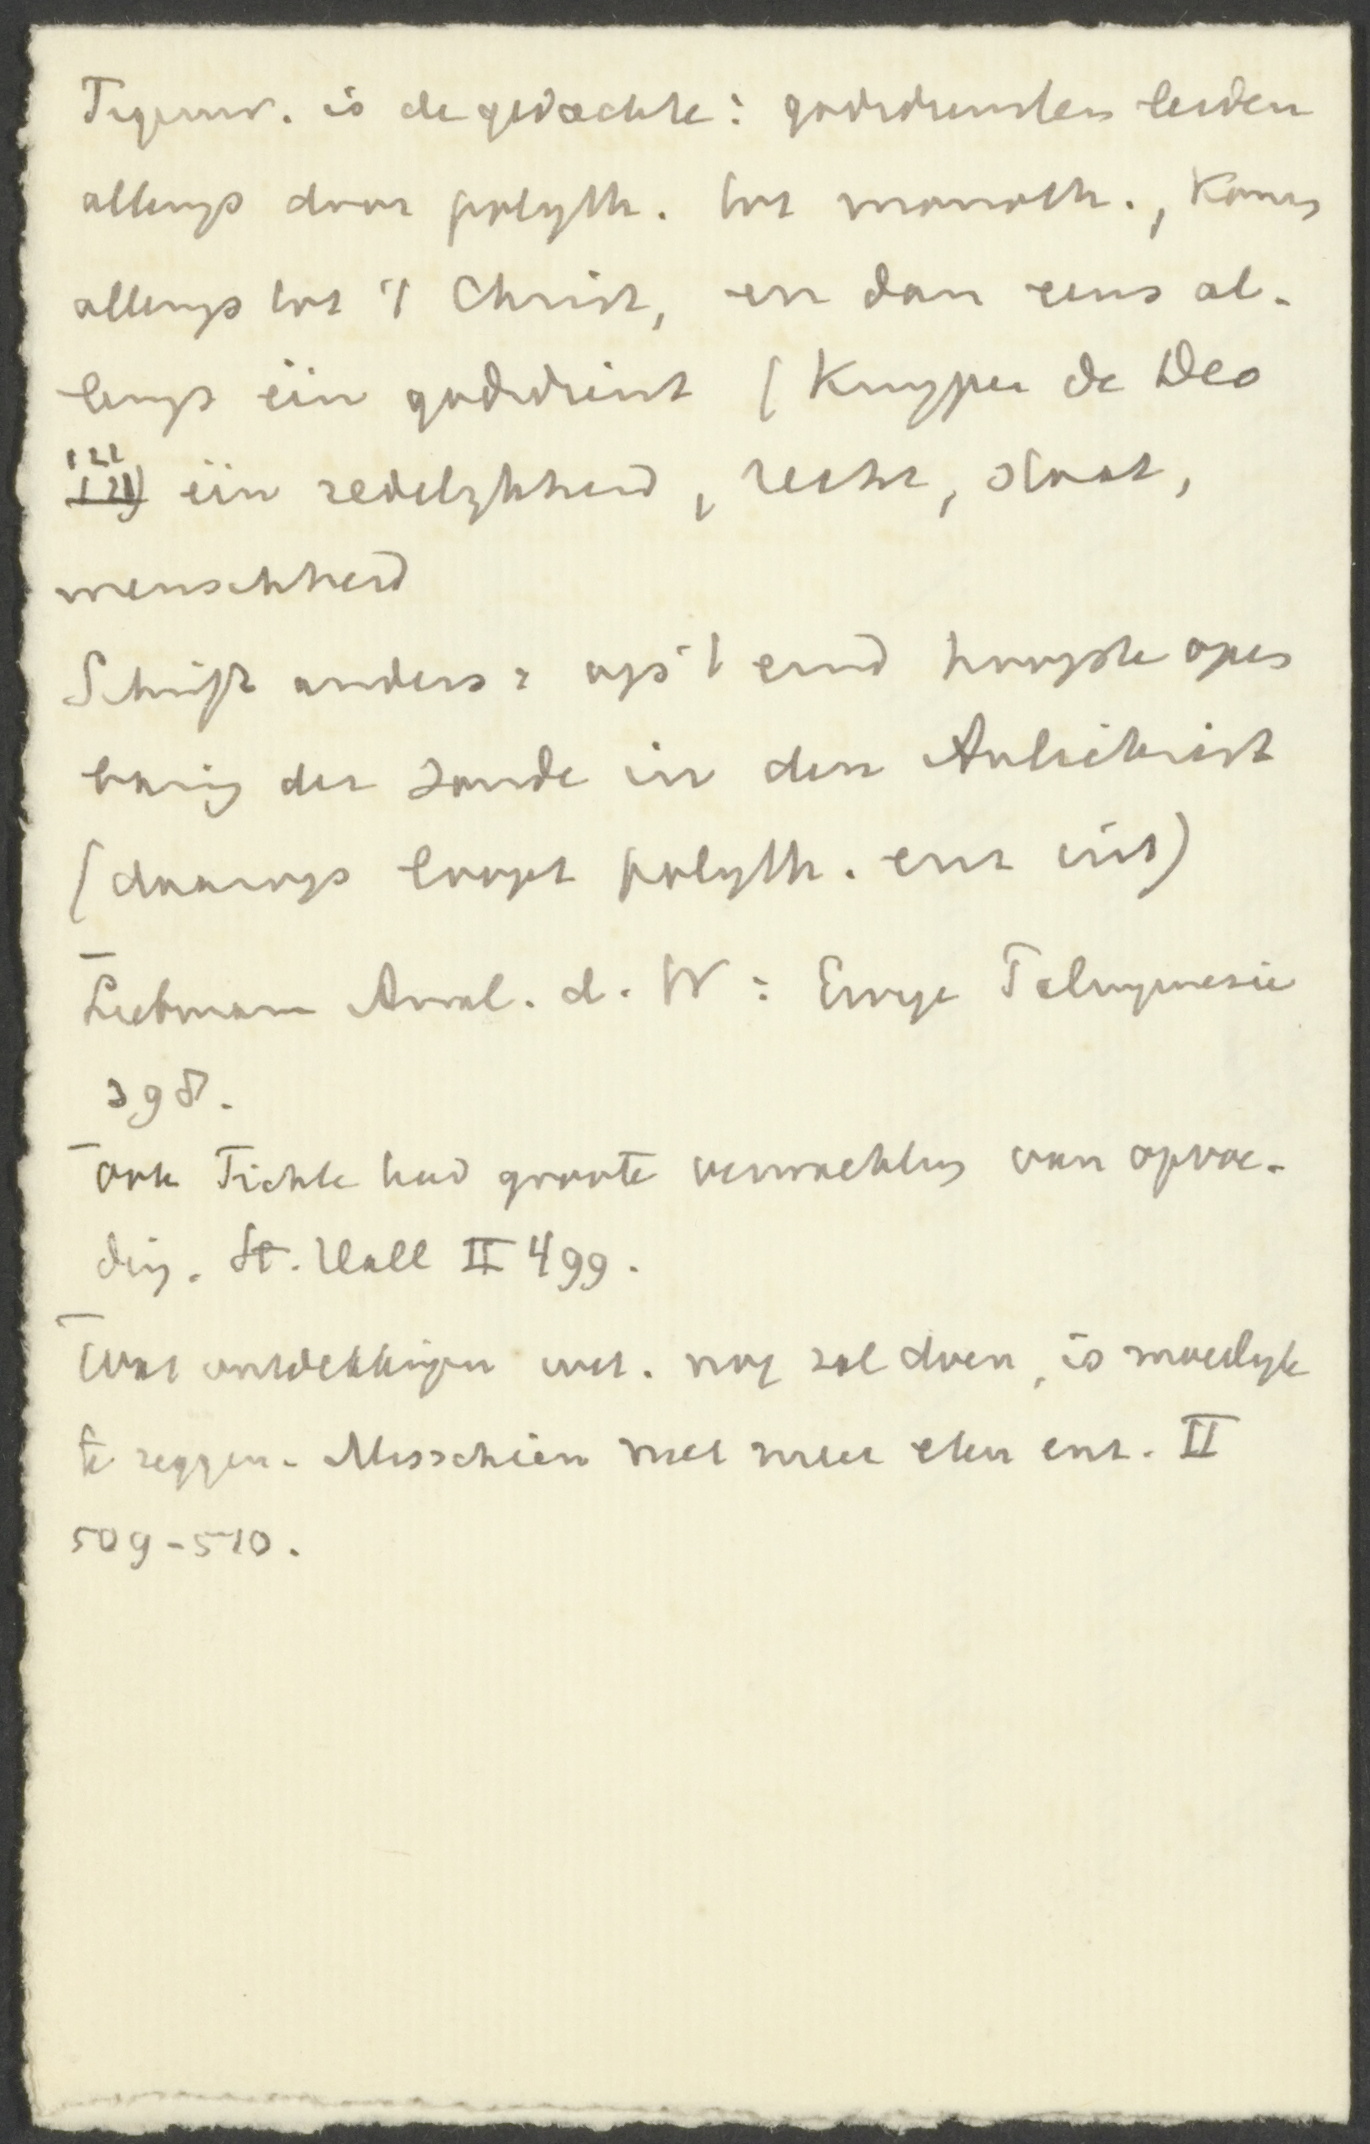 Tegenw. is de gedachte: godsdiensten leiden
allengs door polyth. tot monoth., komen
allengs tot 't Christ, en dan eens al-
lengs één godsdienst (Kuyper de Deo
122
121) één zedelykheid, recht, staat,
menschheid
Schrift anders: op 't eind hoogste open
baring der zonde in den Antichrist
(daarop loopt polyth. enz uit)
Liebmann Anal. d. W: Ewige Palingenesie
398.
ook Fichte had groote verwachting van opvoe-
ding. St. Hall II 499.
Wat ontdekkingen wet. nog zal doen, is moeilyk
te zeggen. Misschien niet meer eten enz. II
509-510.